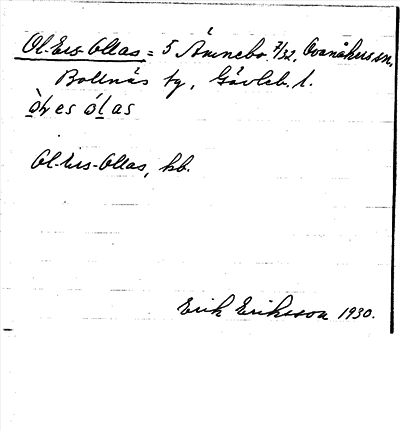 Ol-Ers-Ollas = 5 Ämnebo 7/32, Ovanåkers sn,
Bollnäs tg, Gävleb. l.
es ólas
Ol-Ers-Ollas, kb.
Erik Eriksson 1930.